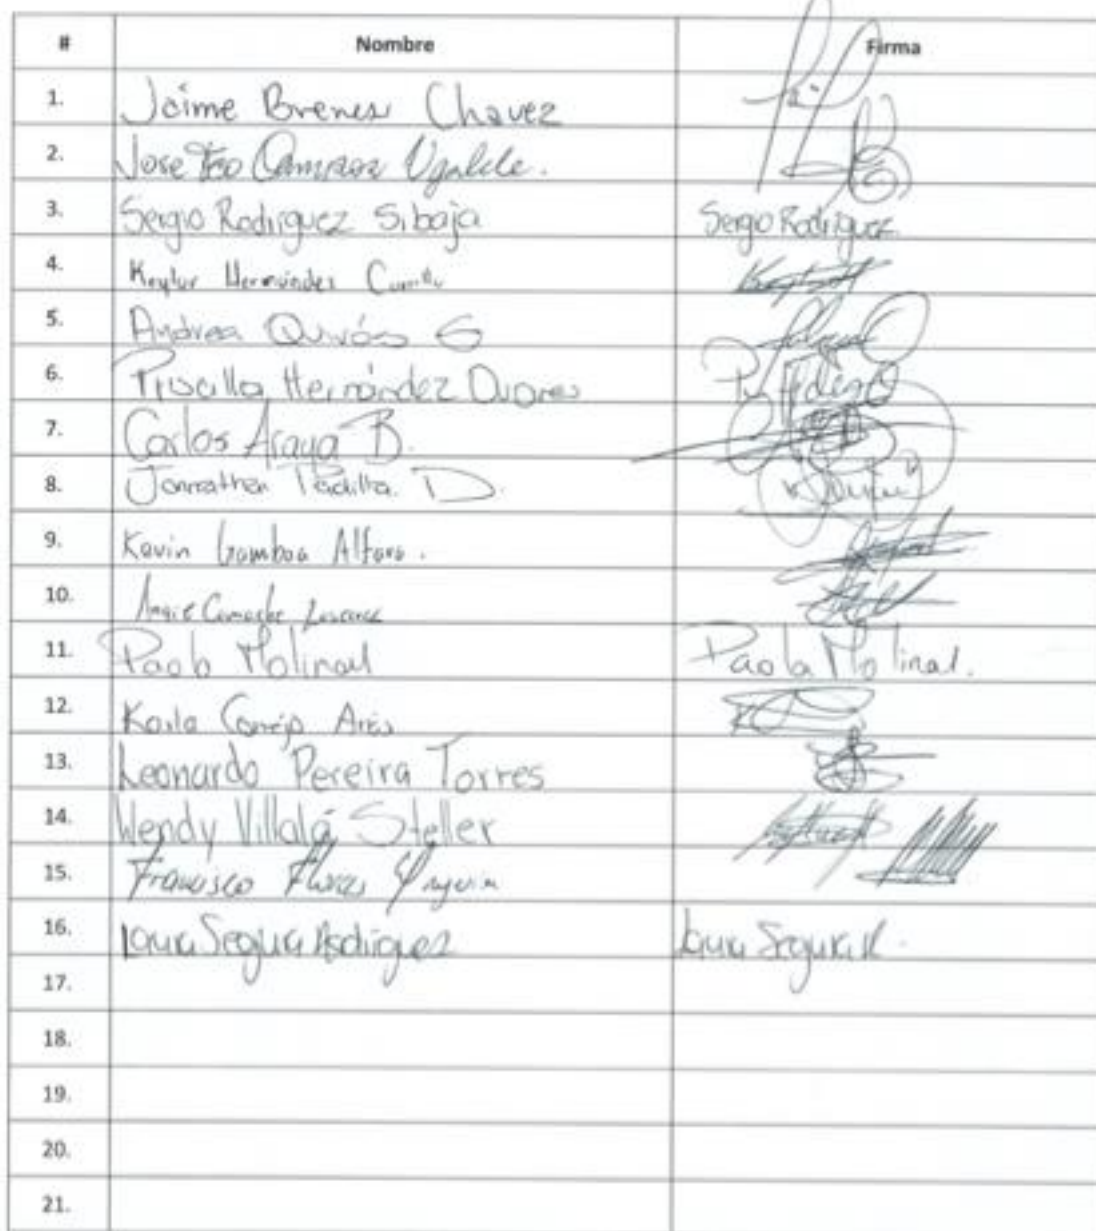 # Nombre Firma
1. Jaime Brenes Chavez
2. Jose Fco Campos Ugalde.
3. Sergio Rodriguez Sibaja Sergio Rodriguez
4. Keylor Hernández
5. Andrea Quirós S
6. Priscilla Hernández
7. Carlos Araya B.
8. Jonnathan Padilla. D.
9. Kevin Gamboa Alfaro.
10. Angie Camacho
11. Paola Molina Paola Molina
12. Karla
13. Leonardo Pereira Torres
14. Wendy Villalá Steller
15. Francisco Flores
16. Laura Segura Rodriguez Laura Segura R.
17.
18.
19.
20.
21.